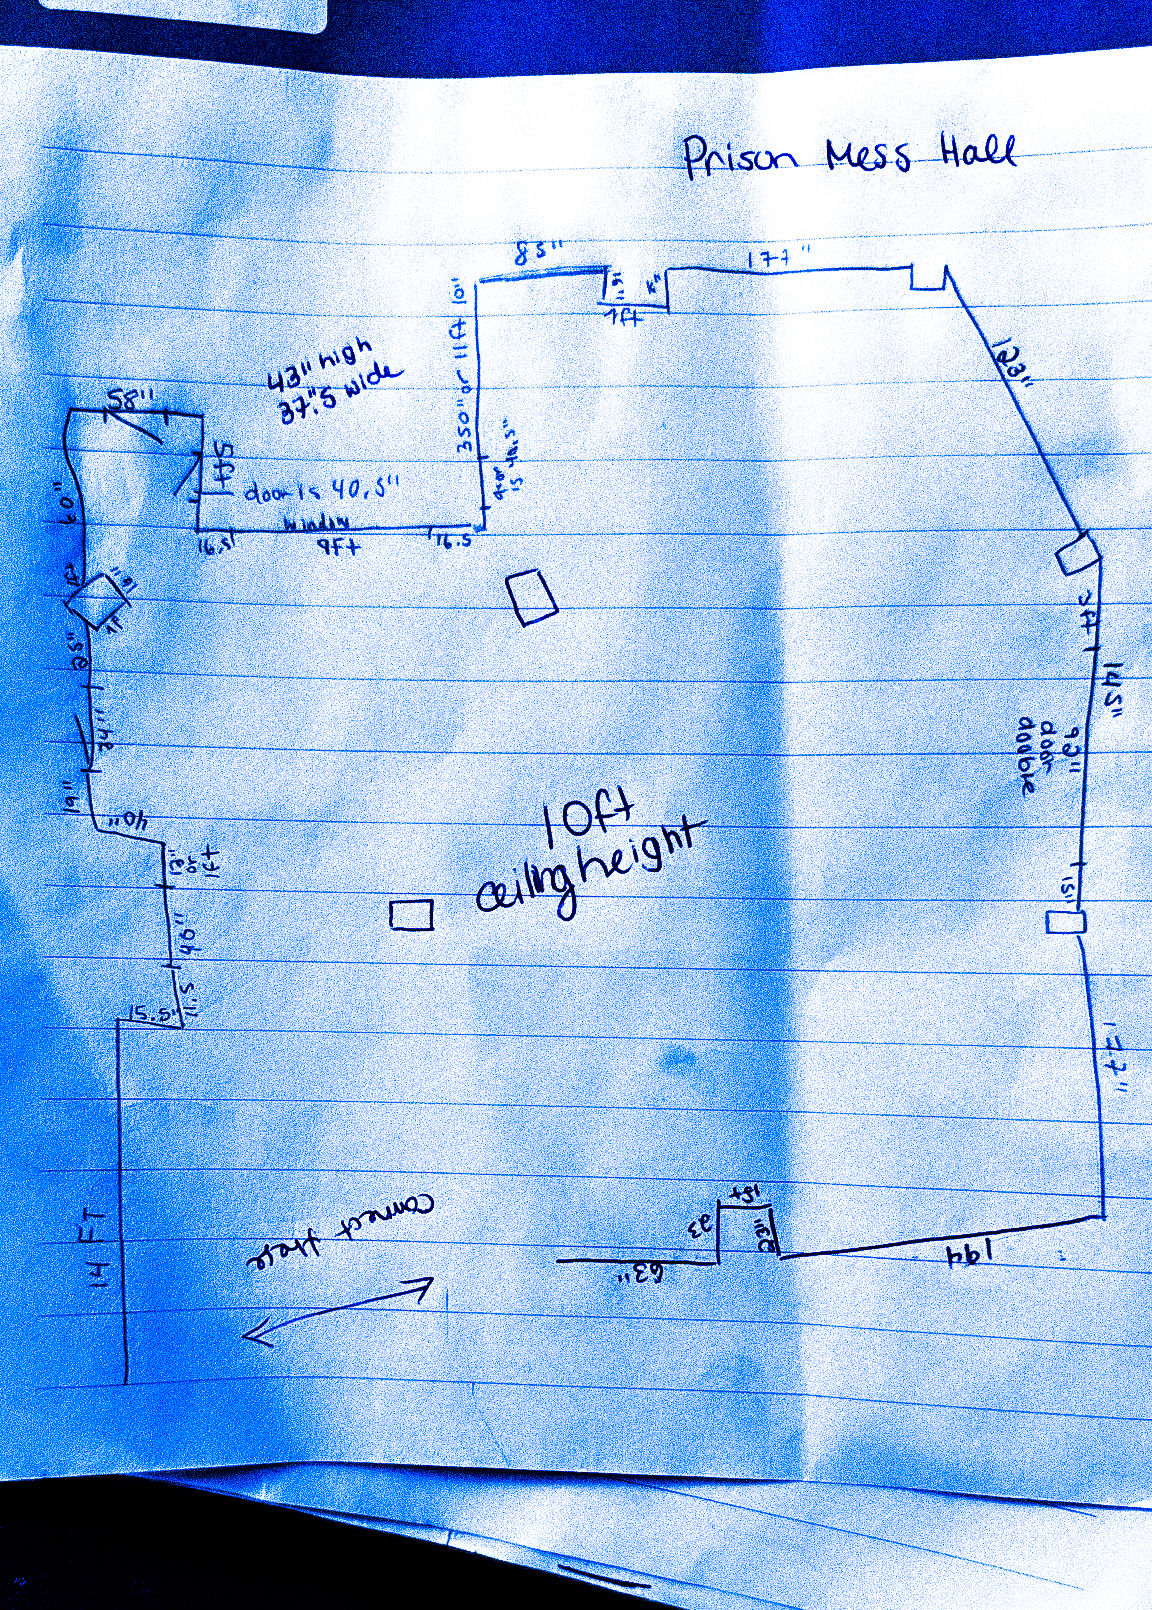 Prison Mess Hall
85"
177"
1ft
350" or 11ft 10"
123"
43" high
37".5 wide
58"
5ft
door is 40.5"
door
is 40.5"
window
16.5"
9Ft
16.5
60"
3ft
145"
92"
door
double
15"
19"
40"
1ft
or
10ft
ceiling height
40"
15.5"
177"
14 FT
connect these
63"
23
1ft
23"
194